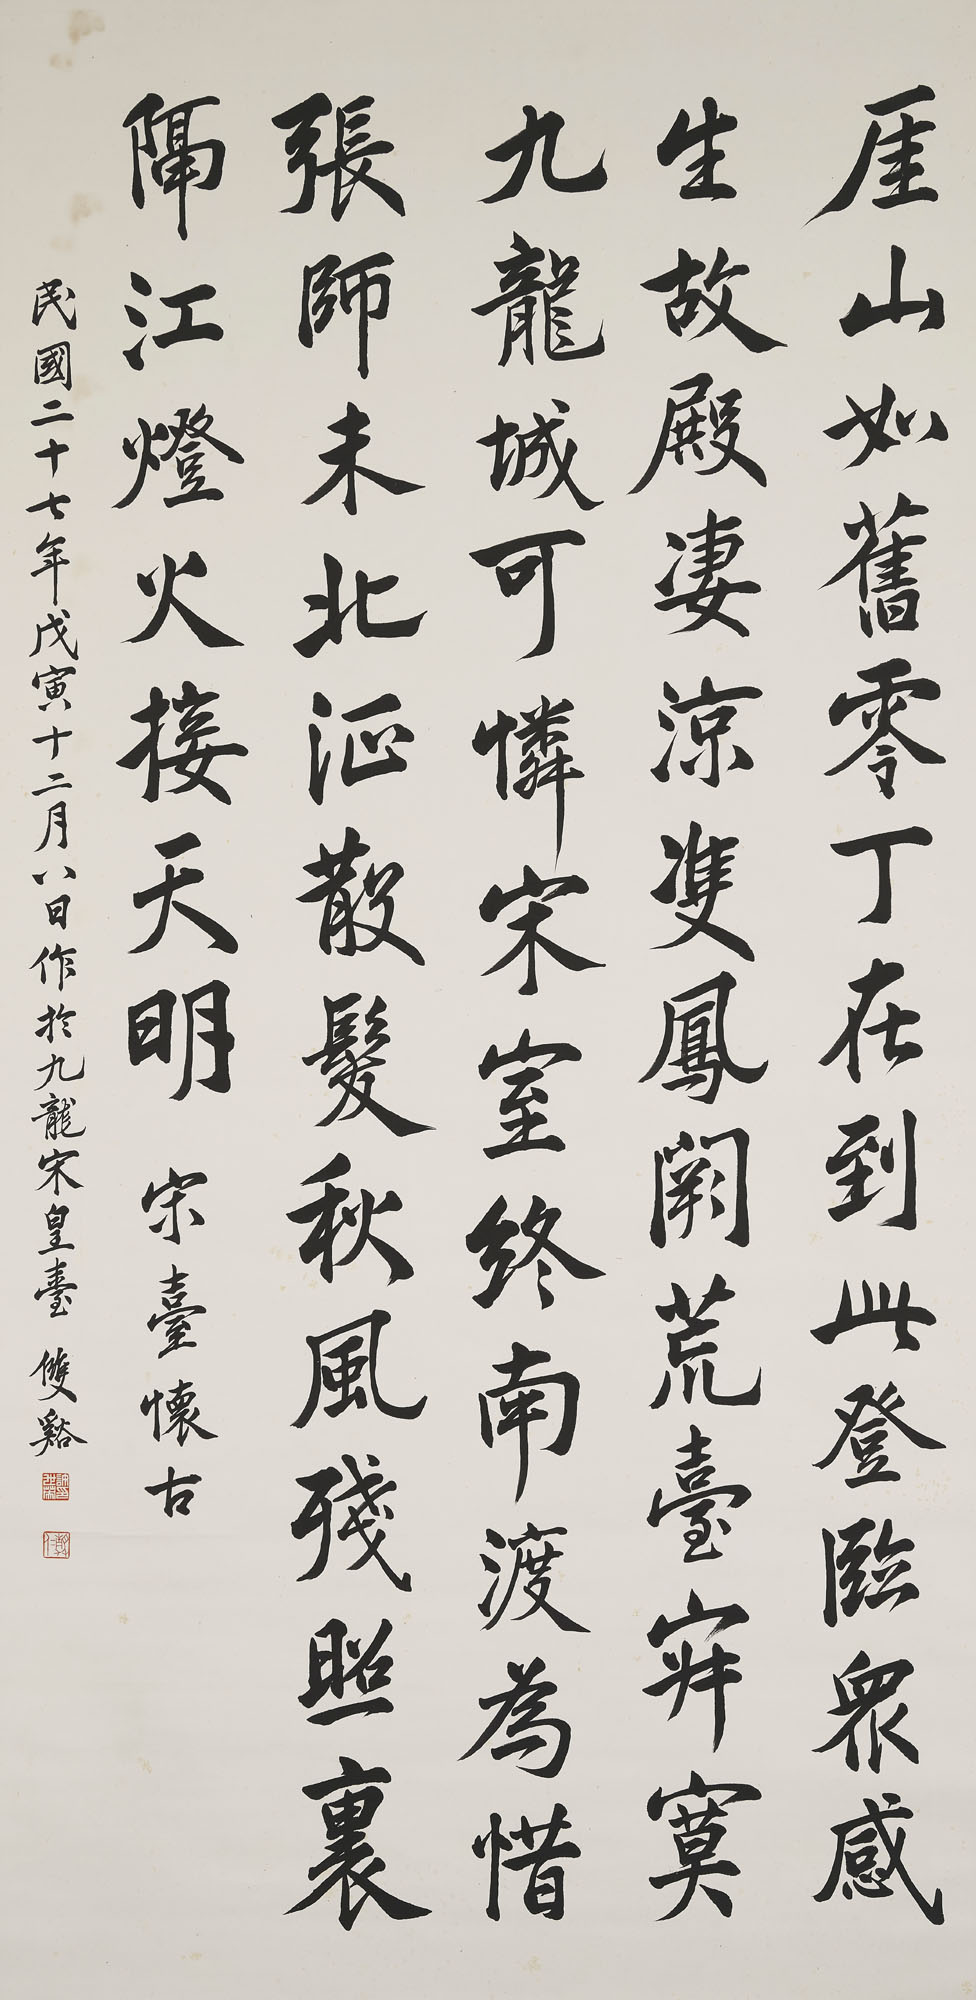 厓山如舊零丁在到此登臨衆感
生故殿淒涼雙鳳闕荒臺寂寞
九龍城可憐宋室終南渡為惜
張師未北征散髮秋風殘照裏
隔江燈火接天明 宋臺懷古
民國二十七年戊寅十二月八日作於九龍宋皇臺 雙谿